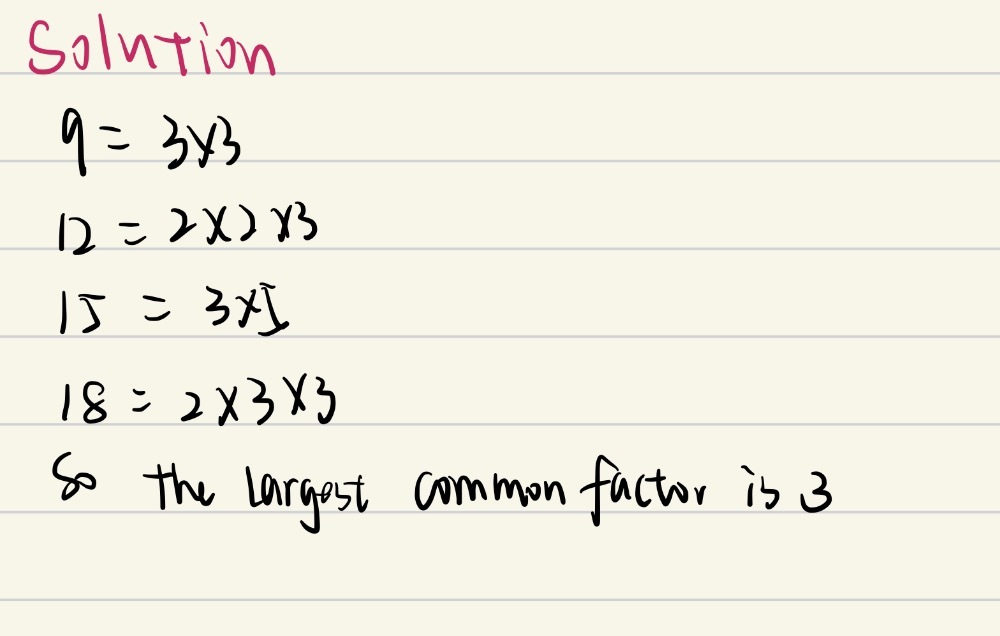 Solution
9 = 3×3
12 = 2×2×3
15 = 3×5
18 = 2×3×3
So the largest common factor is 3